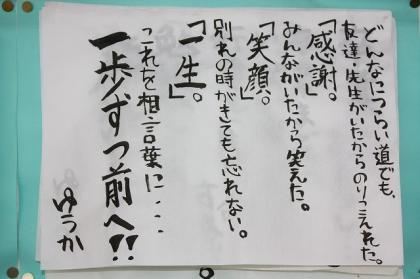 どんなにつらい道でも、
友達・先生がいたからのりこえれた。
「感謝。」
みんながいたから笑えた。
「笑顔。」
別れの時がきても忘れない。
「一生。」
これを相言葉に・・・
一歩ずつ前へ!!
ゆうか